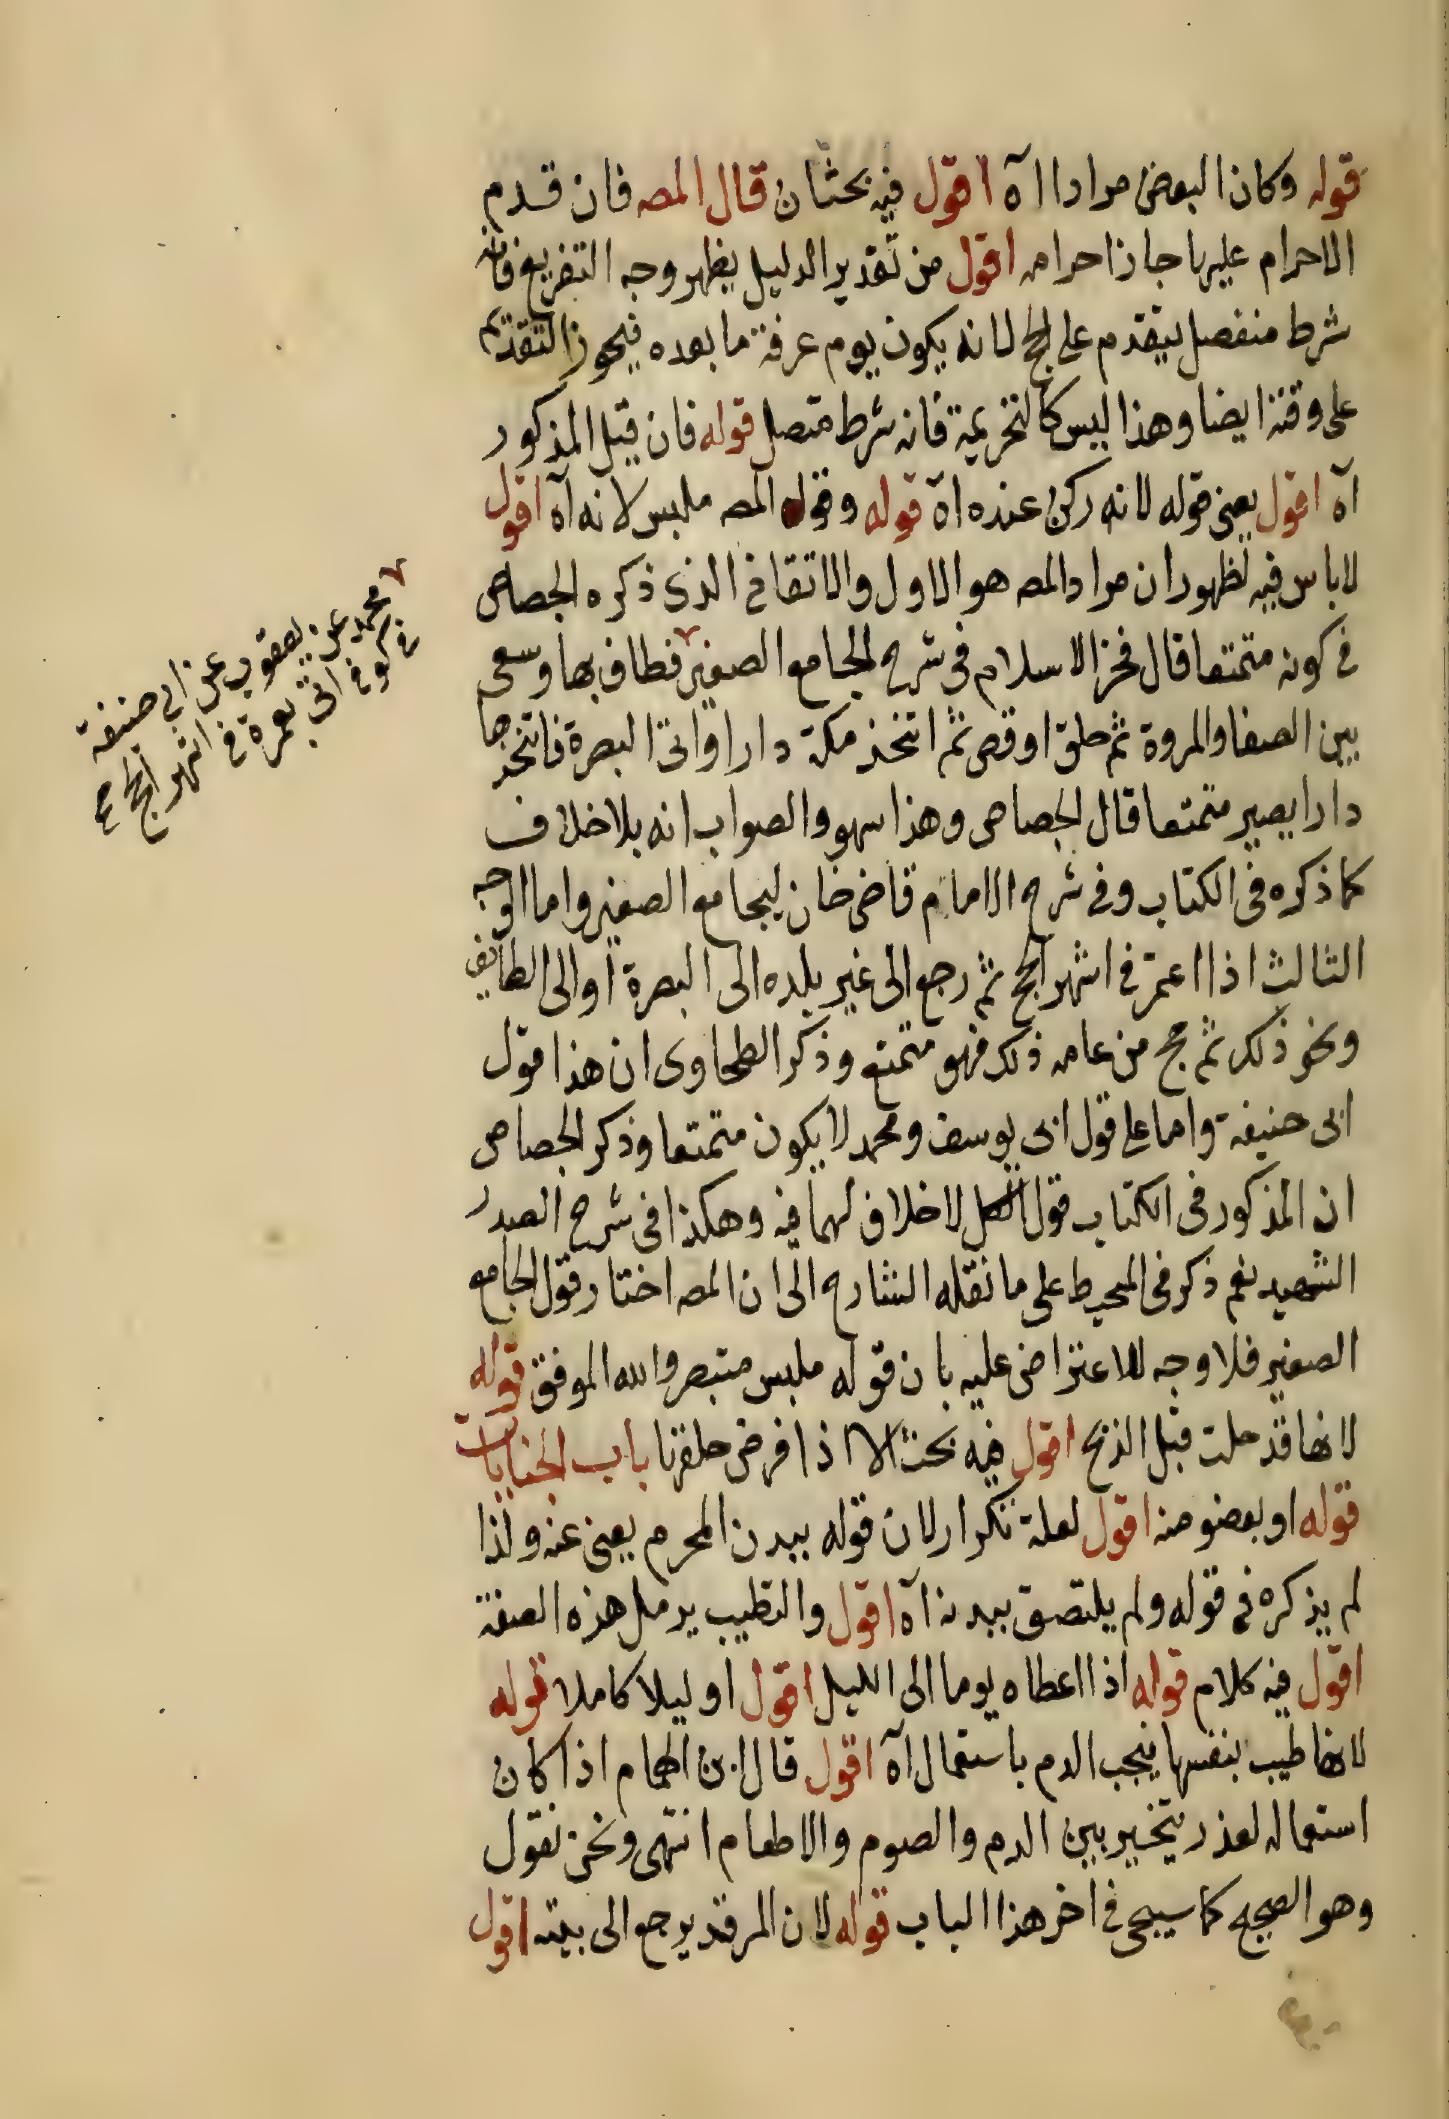 قوله وكان البعض مرادا اه اقول فيه بحثان قال المصه فان قدم
الاحرام عليها جاز احرامه اقول من تقدير الدليل يظهر وجه التفريع فانه
شرط منفصل ليتقدم على الحج لانه يكون يوم عرفة ما بعده فيجوز التقديم
على وقته ايضا وهذا ليس كالتحريمة فانه شرط متصل قوله فان قيل المذكور
آه اقول يعنى قوله لانه ركن عنده آه قوله وقوله المصه ملبس لانه آه اقول
لا باس فيه لظهور ان مراد المصه هو الاول والاتفاق الذى ذكره الجصاص
فى كونه متمتعا قال فخر الاسلام فى شرح الجامع الصغير فطاف بها وسعى
بين الصفا والمروة ثم حلق او قص ثم اتخذ مكة دارا واتى البصرة فاتخذها
دارا يصير متمتعا قال الجصاص وهذا سهو والصواب انه بلا خلاف
كما ذكره فى الكتاب وفى شرح الامام قاضى خان للجامع الصغير واما الوجه
الثالث اذا اعتمر فى اشهر الحج ثم رجع الى غير بلده الى البصرة او الى الطائف
ونحو ذلك ثم حج من عامه ذلك فهو متمتع وذكر الطحاوى ان هذا قول
ابى حنيفة واما على قول ابى يوسف ومحمد لا يكون متمتعا وذكر الجصاص
ان المذكور فى الكتاب قول الكل لا خلاف لهما فيه وهكذا فى شرح الصدر
الشهيد نعم ذكر فى المحيط على ما نقله الشارح الى ان المصه اختار قول الجامع
الصغير فلا وجه للاعتراض عليه بان قوله ملبس متبصر والله الموفق قوله
لانها قد حلت قبل الذبح اقول فيه بحث الا اذا فرض حلقرنا باب الجنايات
قوله او بعضو منه اقول لعله تكرار لان قوله ببدن المحرم يعنى عنه ولذا
لم يذكره فى قوله ولم يلتصق ببدنه آه اقول والتطيب يرمل هذه الصفة
اقول فيه كلام قوله اذا اعطاه يوما الى الليل اقول او ليلا كاملا قوله
لانها طيب بنفسها فيجب الدم باستعمال آه اقول قال ابن الهمام اذا كان
استعماله لعذر يتخير بين الدم والصوم والاطعام انتهى ونحن نقول
وهو الصحيح كما سيجى فى اخر هذا الباب قوله لان المر قد يرجع الى بيته اقول
محمد عن يعقوب عن ابى حنيفة
فى كوفى اتى بعمرة فى اشهر الحج صح